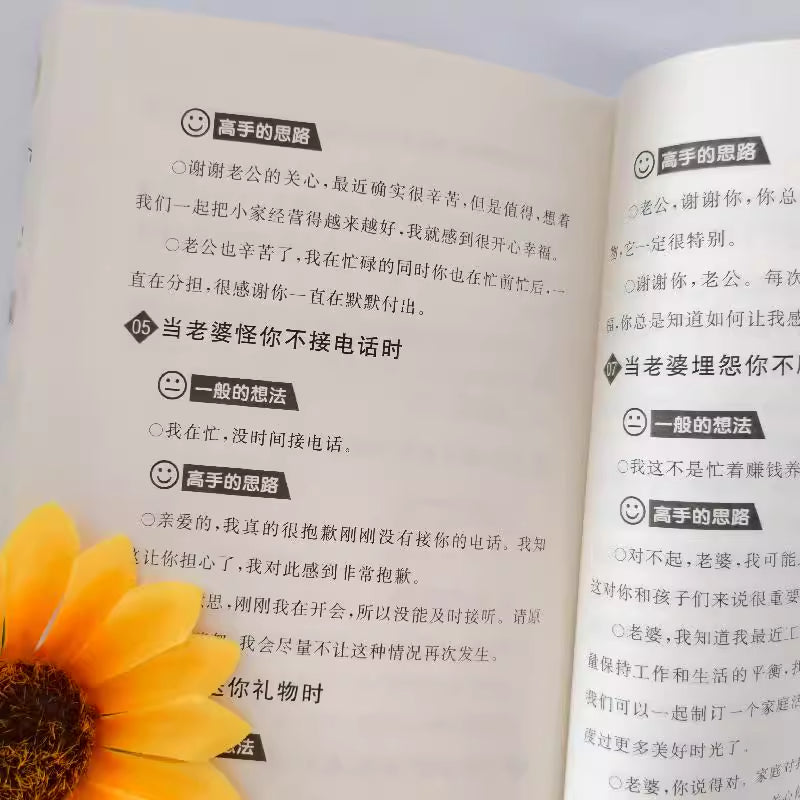 高手的思路
○谢谢老公的关心，最近确实很辛苦，但是值得，想着
我们一起把小家经营得越来越好，我就感到很开心幸福。
○老公也辛苦了，我在忙碌的同时你也在忙前忙后，一
直在分担，很感谢你一直在默默付出。
05 当老婆怪你不接电话时
一般的想法
○我在忙，没时间接电话。
高手的思路
○亲爱的，我真的很抱歉刚刚没有接你的电话。我知
这让你担心了，我对此感到非常抱歉。
思，刚刚我在开会，所以没能及时接听。请原
我会尽量不让这种情况再次发生。
你礼物时
想法
高手的思路
○老公，谢谢你，你总
它一定很特别。
○谢谢你，老公。每次
福，你总是知道如何让我感
07 当老婆埋怨你不
一般的想法
○我这不是忙着赚钱养
高手的思路
○对不起，老婆，我可能
这对你和孩子们来说很重要
○老婆，我知道我最近工
量保持工作和生活的平衡，
我们可以一起制订一个家庭
度过更多美好时光了。
○老婆，你说得对，家庭对